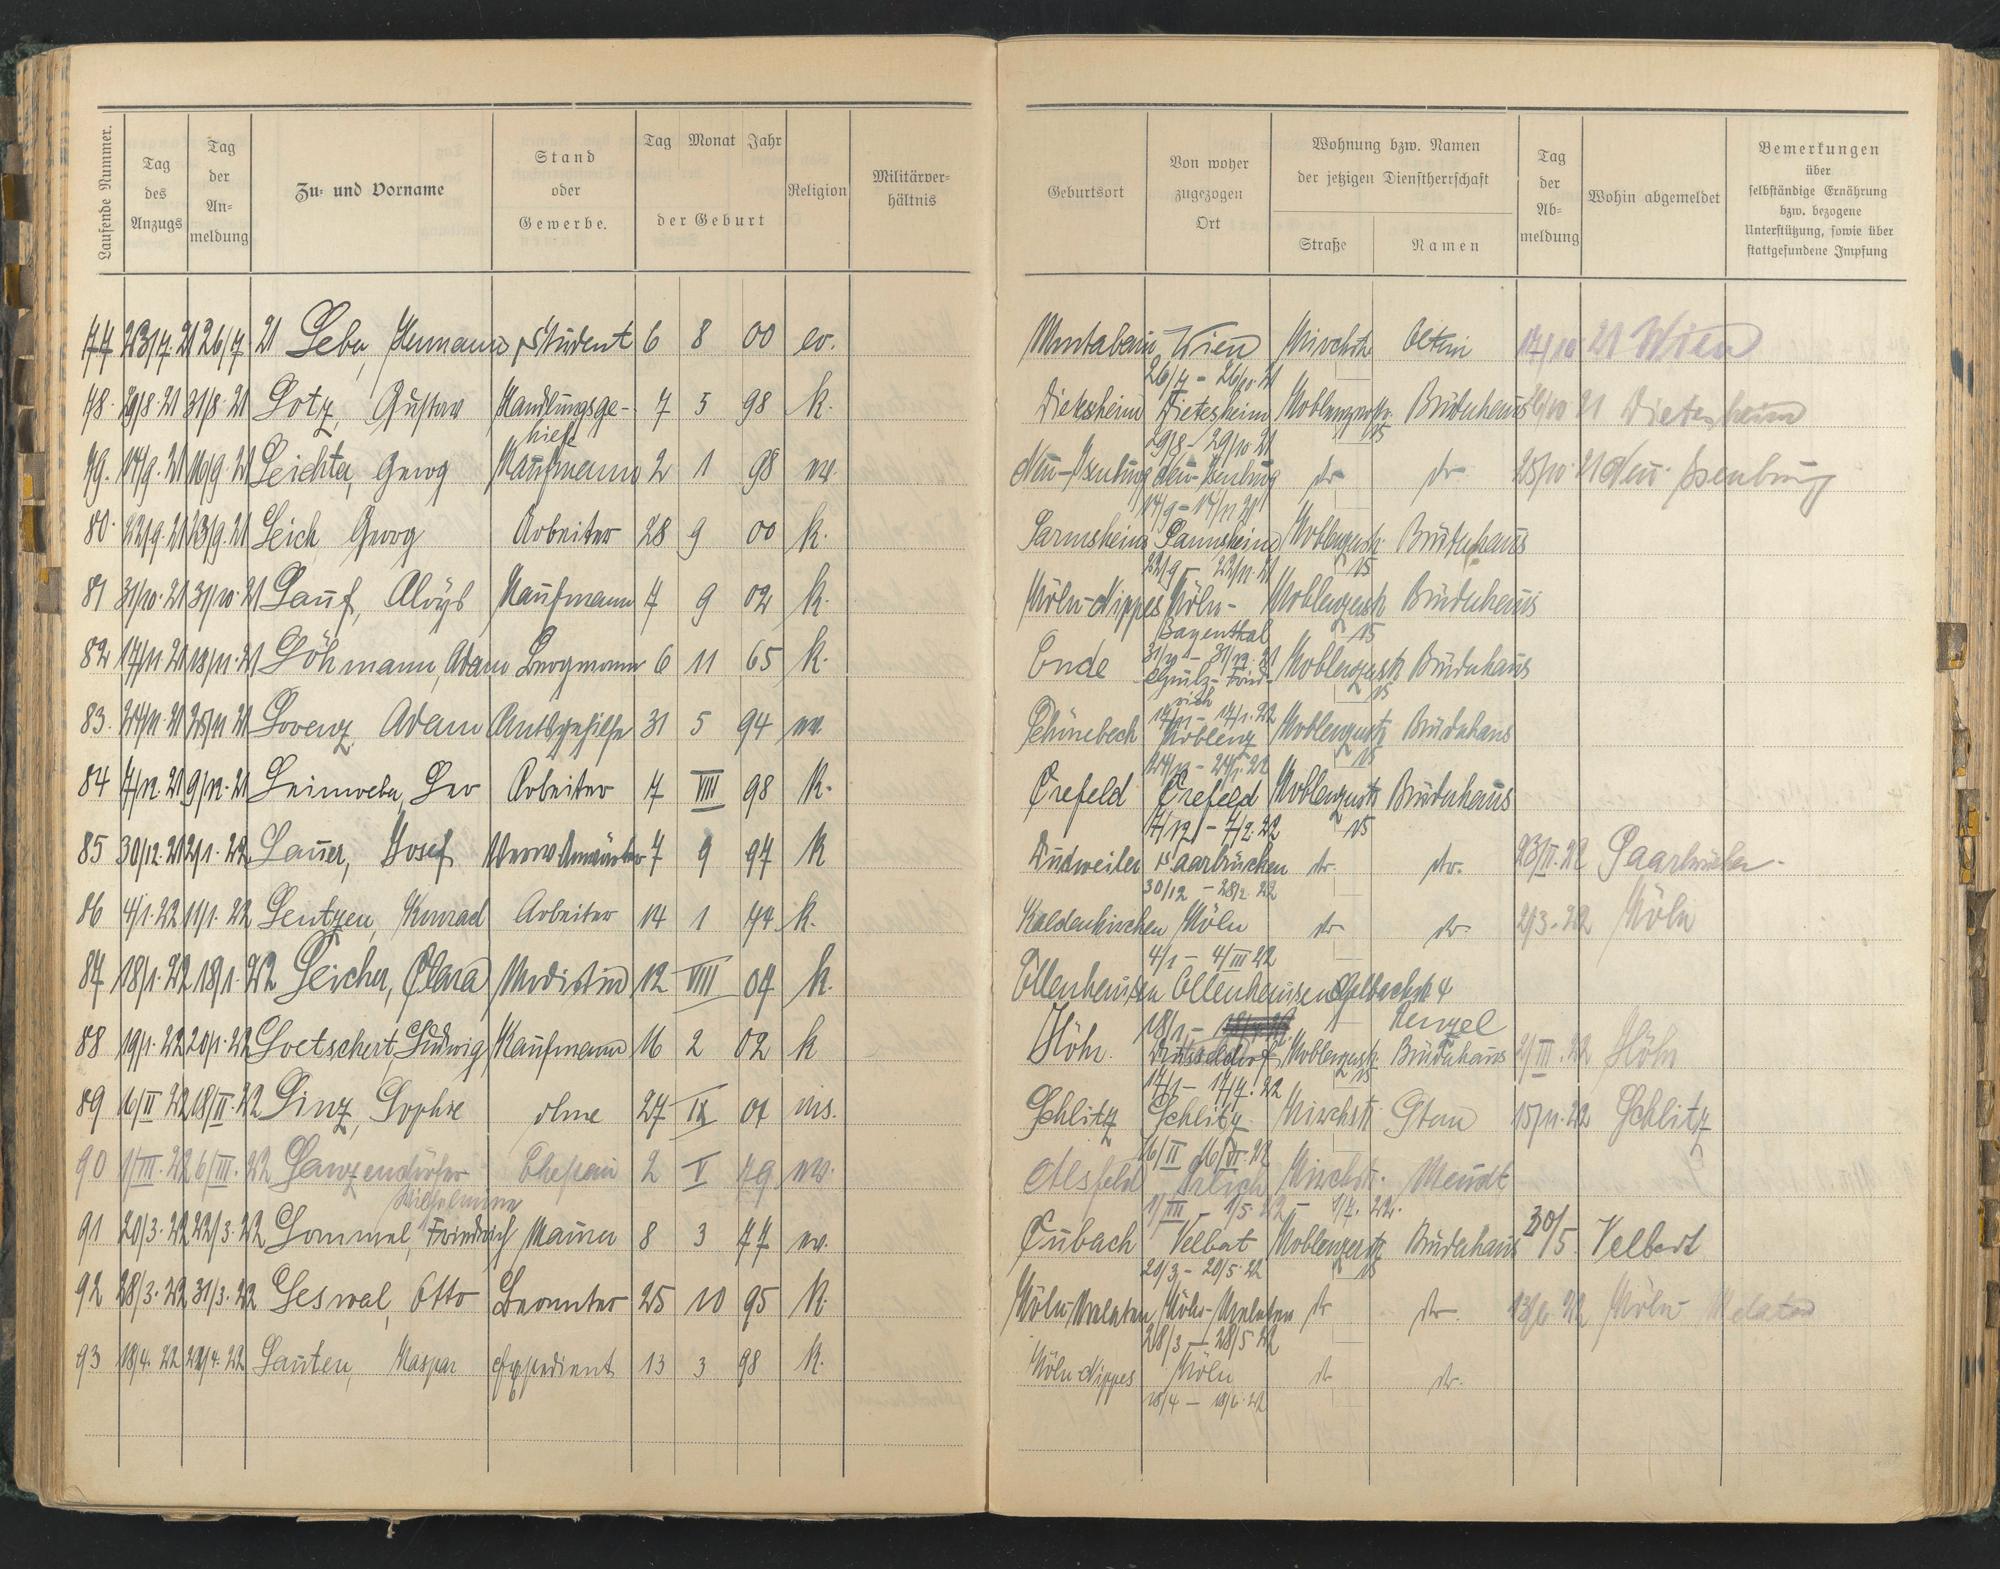 Laufende Nummer.
Tag des Anzugs
Tag der An= meldung
Zu= und Vorname
Stand oder Gewerbe.
Tag Monat Jahr
der Geburt
Religion
Militärver= hältnis
Geburtsort
Von woher zugezogen Ort
Wohnung bzw. Namen der jetzigen Dienstherrschaft
Straße
Namen
Tag der Ab= meldung
Wohin abgemeldet
Bemerkungen über selbständige Ernährung bzw. bezogene Unterstützung, sowie über stattgefundene Impfung
77 23/7. 21 26/7 21 Hermann Student 6 8 00 ev. Wien Kirchstr 21 Wien
26/7 - 26/10. 21
78. 29/8. 21 31/8. 21 Lotz, Gustav Handlungsge- 7 5 98 k. Dietesheim Dietesheim Koblenzerstr. Brüderhaus 21 Dietesheim
15
29/8 - 29/10 21
79. 17/9. 21 16/9. 21 Georg Kaufmann 2 1 98 ev. Neu-Isenburg Neu-Isenburg do do 25/10. 21 Neu-Isenburg
17/9 - 17/11 21
80. 22/9. 21 23/9. 21 Leich Georg Arbeiter 28 9 00 k. Sarmsheim Sarmsheim Koblenzerstr. Brüderhaus
22/9 - 22/11. 21 15
81 31/10. 21 31/10. 21 Lauf, Aloys Kaufmann 7 9 02 k. Köln-Nippes Köln- Koblenzerstr Brüderhaus
Bayenthal 15
31/10 - 31/12. 21
82 17/11. 21 18/11. 21 Löhmann, Adam Bergmann 6 11 65 k. Ende Koblenzerstr Brüderhaus
15
17/11 - 17/1. 22
83. 24/11. 21 25/11 21 Lorenz Adam Amtsgehilfe 31 5 94 ev. Schönebeck Koblenz Koblenzerstr Brüderhaus
24/11 - 24/1. 22 15
84 7/12. 21 9/12. 21 Leinweber, Leo Arbeiter 7 VIII 98 k. Crefeld Crefeld Koblenzerstr Brüderhaus
7/12 - 7/2. 22 15
85 30/12. 21 2/1. 22 Lauer, Josef Verw Anwärter 7 9 97 k Dudweiler Saarbrücken do. do. 23/II. 22 Saarbrücken
30/12 - 28/2. 22
86 4/1. 22 11/1. 22 Lentzen, Konrad Arbeiter 14 1 74 k. Kaldenkirchen Köln do do. 2/3. 22 Köln
4/1 - 4/III 22
87 18/1. 22 18/1. 22 Leicher, Clara Modistin 12 VIII 04 k. Ellenhausen Ellenhausen Gelbachstr. 4
18/1 - Menzel
88 19/1. 22 20/1. 22 Loetschert, Ludwig Kaufmann 16 2 02 k Höhr. Düsseldorf Koblenzerstr. Brüderhaus 2/III. 22 Höhr
15
89 16/II 22 18/II. 22 Linz, Sophie ohne 27 IX 01 ins. Schlitz Schlitz Kirchstr. Stern 15/11. 22 Schlitz
90 1/III. 22 6/III. 22 Lanzendörfer Ehefrau 2 V 79 ev. Alsfeld Kirchstr. Meudt
Wilhelmine
91 20/3. 22 22/3. 22 Lommel, Friedrich Maurer 8 3 77 ev. Cubach Velbert Koblenzerstr Brüderhaus 30/5. Velbert
20/3 - 20/5. 22 15
92 28/3. 22 31/3. 22 Otto Beamter 25 10 95 k. Köln-Melaten Köln-Melaten do do. 13/6. 22 Köln Melaten
28/3 - 28/5 22
93 18/4. 22 22/4. 22 Lauten, Kaspar Expedient 13 3 98 k. Köln-Nippes Köln do do.
18/4 - 18/6. 22